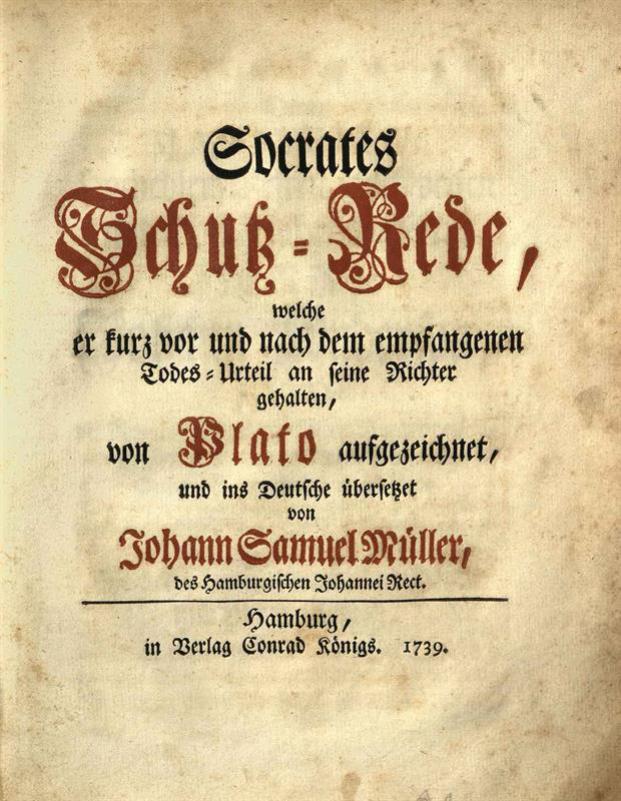 Socrates
Schutz-Rede,
welche
er kurz vor und nach dem empfangenen
Todes-Urteil an seine Richter
gehalten,
von Plato aufgezeichnet,
und ins Deutsche übersetzet
von
Johann Samuel Müller,
des Hamburgischen Johannei Rect.
Hamburg,
in Verlag Conrad Königs. 1739.